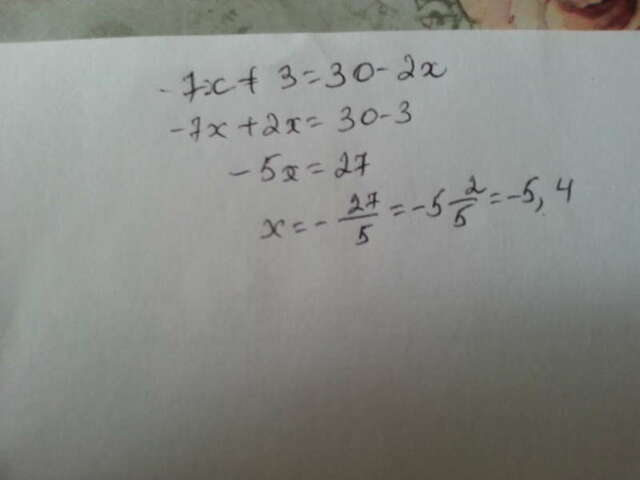 -7x+3=30-2x
-7x+2x=30-3
-5x=27
x=-27/5=-5 2/5=-5,4